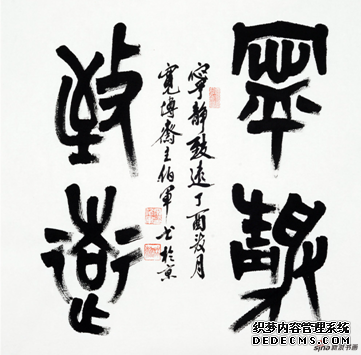 寧靜
致遠
寧靜致遠丁酉荷月
寬博齋主伯軍書於京
織夢內容管理系統
DEDECMS.COM
sina 新浪书画